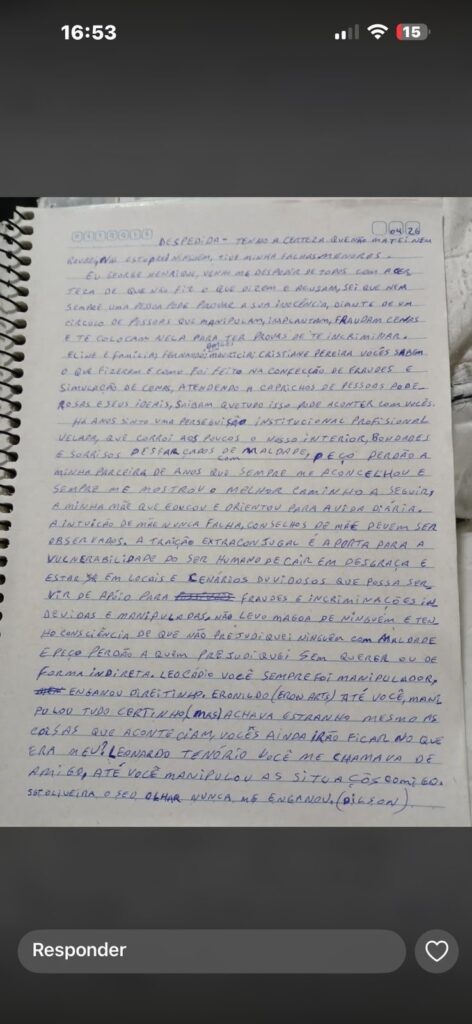 16:53
15
04 26
DESPEDIDA- TENHO A CERTEZA QUE NÃO MATEI NEM
ROUBEI, NÃO ESTUPREI NINGUÉM, TIVE MINHA FALHAS MENORES.
EU GEORGE HENRIQUE, VENHO ME DESPEDIR DE TODOS COM A CER
TEZA DE QUE NÃO FIZ O QUE DIZEM E ACUSAM, SEI QUE NEM
SEMPRE UMA PESSOA PODE PROVAR A SUA INOCÊNCIA, DIANTE DE UM
CÍRCULO DE PESSOAS QUE MANIPULAM, IMPLANTAM, FRAUDAM CENAS
E TE COLOCAM NELA PARA TER PROVAS DE TE INCRIMINAR.
ELINE E FAMÍLIA, FERNANDO MAURICIA, CRISTIANE PEREIRA VOCÊS SABEM
O QUE FIZERAM E COMO FOI FEITO NA CONFECÇÃO DE FRAUDES E
SIMULAÇÃO DE CENAS, ATENDENDO A CAPRICHOS DE PESSOAS PODE
ROSAS E SEUS IDEAIS, SAIBAM QUE TUDO ISSO PODE ACONTER COM VOCÊS.
HA ANOS SINTO UMA PERSEGUISÃO INSTITUCIONAL PROFISIONAL
VELADA, QUE CORROI AOS POUCOS O NOSSO INTERIOR, BONDADES
E SORRISOS DESFARÇADOS DE MALDADE, COM PEÇO PERDÃO A
MINHA PARCEIRA DE ANOS QUE SEMPRE ME ACONCELHOU E
SEMPRE ME MOSTROU O MELHOR CAMINHO A SEGUIR,
A MINHA MÃE QUE EDUCOU E ORIENTOU PARA A VIDA DIÁRIA.
A INTUIÇÃO DE MÃE NUNCA FALHA, CONSELHOS DE MÃE DEVEM SER
OBSERVADOS. A TRAIÇÃO EXTRACONJUGAL É A PORTA PARA A
VULNERABILIDADE DO SER HUMANO DE CAIR EM DESGRAÇA E
ESTAR EM LOCAIS E CENÁRIOS DUVIDOSOS QUE POSSA SER
VIR DE APOIO PARA FRAUDES E INCRIMINAÇÕES IN
DEVIDAS E MANIPULADAS, NÃO LEVO MAGOA DE NINGUÉM E TEN
HO CONSCIÊNCIA DE QUE NÃO PREJUDIQUEI NINGUÉM COM MALDADE
E PEÇO PERDÃO A QUEM PREJUDIQUEI SEM QUERER OU DE
FORMA INDIRETA. LEOCÁDIO VOCÊ SEMPRE FOI MANIPULADOR,
ENGANOU DIREITINHO. ERONILDO (ERON ARTS) ATÉ VOCÊ, MANI
PULOU TUDO CERTINHO, (MAS) ACHAVA ESTRANHO MESMO AS
COISAS QUE ACONTECIAM, VOCÊS AINDA IRÃO FICAR NO QUE
ERA MEU? LEONARDO TENÓRIO VOCÊ ME CHAMAVA DE
AMIGO, ATÉ VOCÊ MANIPULOU AS SITUAÇÕS COMIGO.
SGT OLIVEIRA O SEU OLHAR NUNCA ME ENGANOU. (DILSON)
Responder